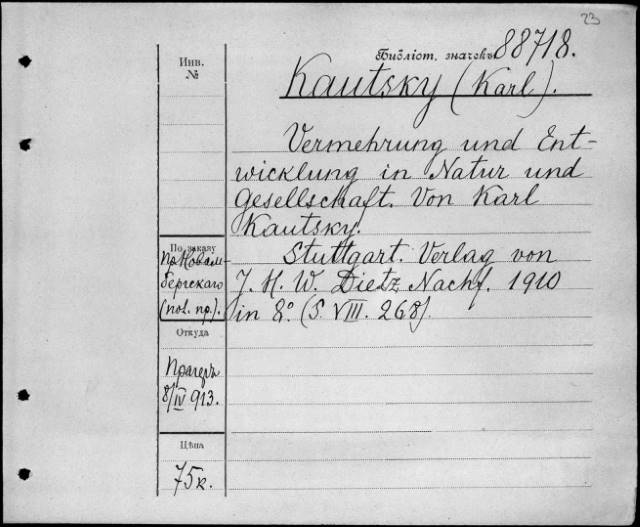 23
Библіот. значекъ 88718.
Инв.
№
Kautsky (Karl).
Vermehrung und Ent-
wicklung in Natur und
Gesellschaft. Von Karl
Kautsky.
Stuttgart. Verlag von
J. H. W. Dietz Nachf. 1910
in 8° (S. VIII. 268).
По заказу
пр. Новом-
бергскаго
(pol. пр.).
Откуда
Прагеръ
8/IV 913.
Цѣна
75 к.